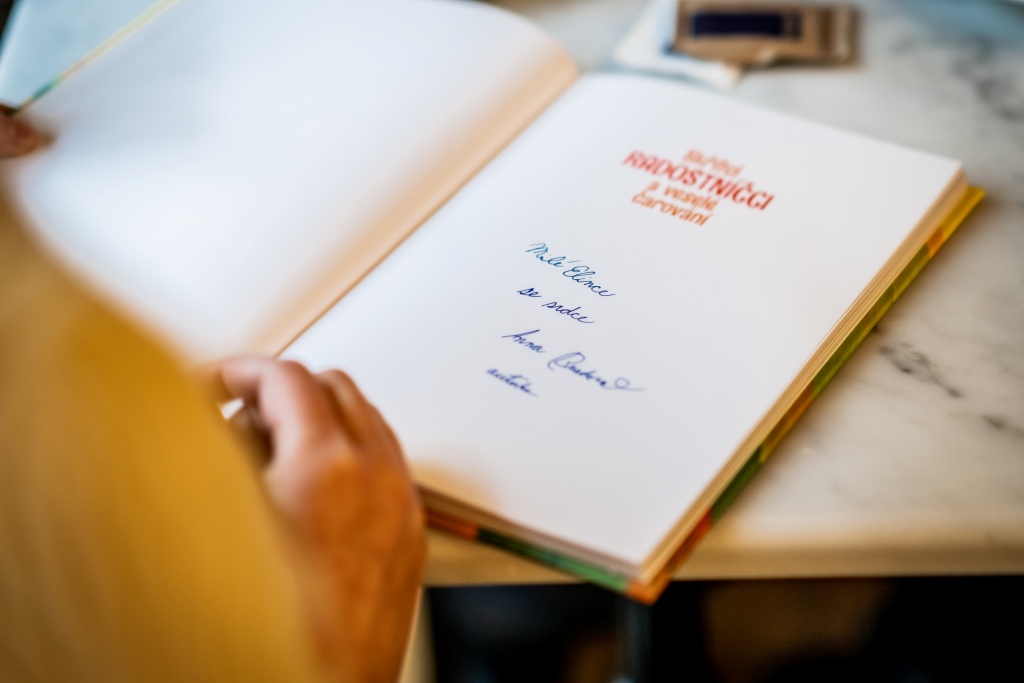 Skřítci
RADOSTNÍČCI
a veselé
čarování
Milé Elince
se srdce
Anna
autorka